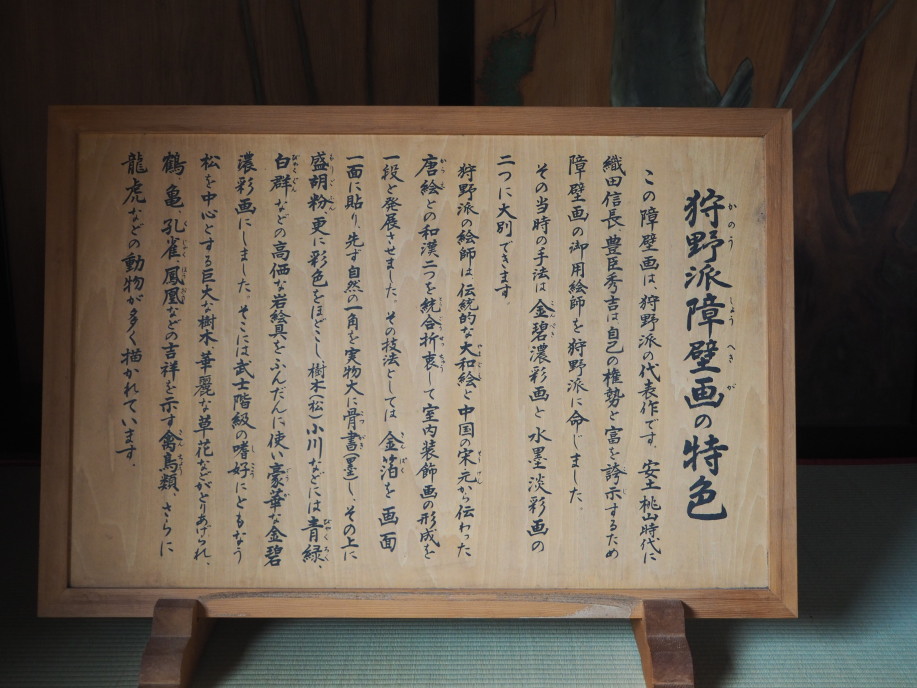 狩野派障壁画の特色
この障壁画は、狩野派の代表作です。安土桃山時代に
織田信長、豊臣秀吉は自己の権勢と富を誇示するため
障壁画の御用絵師を狩野派に命じました。
その当時の手法は金碧濃彩画と水墨淡彩画の
二つに大別できます。
狩野派の絵師は伝統的な大和絵と中国の宋元から伝わった
唐絵との和漢二つを統合折衷して室内装飾画の形成を
一段と発展させました。その技法としては金箔を画面
一面に貼り、先ず自然の一角を実物大に骨書(墨)し、その上に
盛胡粉、更に彩色をほどこし樹木(松)小川などには青緑、
白群などの高価な岩絵具をふんだんに使い豪華な金碧
濃彩画にしました。そこには武士階級の嗜好にともなう
松を中心とする巨大な樹木、華麗な草花などがとりあげられ、
鶴、亀、孔雀、鳳凰などの吉祥を示す禽鳥類、さらに
龍虎などの動物が多く描かれています。